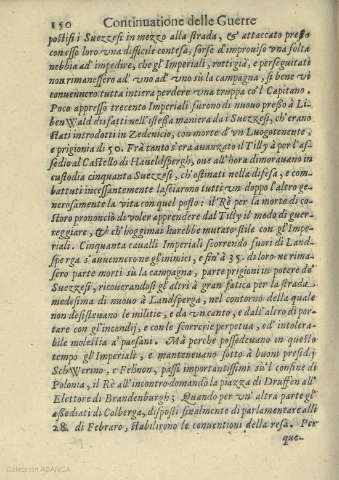 150 Continuatione delle Guerre
postisi i Suezzesi in mezzo alla strada, & attaccato presto
con esso loro una difficile contesa, sorse d'improuiso vna folta
nebbia ad' impedire, che gl'Imperiali, rotti già, e perseguitati
non rimanessero ad' vno ad' vno sù la campagna, si bene vi
conuenne tutta intiera perdere vna truppa co'l Capitano.
Poco appresso trecento Imperiali furono di nuouo presso à Li-
benWald disfatti nell'istessa maniera da i Suezzesi, ch'erano
stati introdotti in Zedenicio, con morte d'vn Luogotenente,
e prigionia di 50. Frà tanto s'era auanzato il Tilly à por l'as-
sedio al Castello di Haueldspergh, oue all'hora dimorauano in
custodia cinquanta Suezzesi, ch'ostinati nella difesa, e com-
battuti incessantemente lasciarono tutti vn doppo l'altro ge-
nerosamente la vita con quel posto: il Rè per la morte di co-
storo prononciò di voler apprendere dal Tilly il modo di guer-
reggiare, & ch'hoggimai harebbe mutato stile con gl'Impe-
riali. Cinquanta caualli Imperiali scorrendo fuori di Land-
sperga s'auuennero ne gl'inimici, e fin'à 35. di loro ne rima-
sero parte morti sù la campagna, parte prigioni in potere de'
Suezzesi, ricouerandosi gl'altri à gran fatica per la strada
medesima di nuouo à Landsperga, nel contorno della quale
non desisteuano le militie, e da vn canto, e dall'altro di por-
tare con gl'incendij, e con le scorrerie perpetua, ed' intolera-
bile molestia a' paesani. Mà perche possedeuano in questo
tempo gl'Imperiali, e manteneuano sotto à buoni presidij
SchWerino, e Felinon, passi importantissimi sù'l confine di
Polonia, il Rè all'incontro domandò la piazza di Drussen all'
Elettore di Brandenburgh; Quando per vn'altra parte gl'
assediati di Colberga, disposti finalmente di parlamentare alli
28. di Febraro, stabilirono le conuentioni della resa. Per
que-
Colección ABANCA